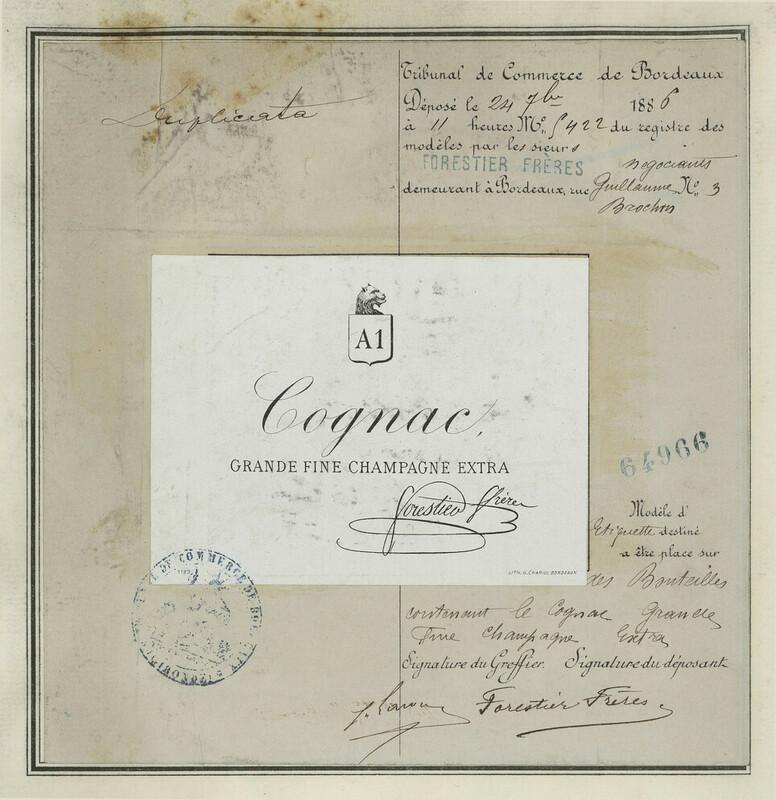 Duplicata
Tribunal de Commerce de Bordeaux
Déposé le 24 7bre 1886
à 11 heures No 5422 du registre des
modèles par les sieurs
FORESTIER FRÈRES négociants
demeurant à Bordeaux, rue Guillaume No 3
Brochon
A1
Cognac,
GRANDE FINE CHAMPAGNE EXTRA
Forestier Frères
LITH. G. CHARIOL BORDEAUX
64966
Modèle d'
Etiquette destiné
a être place sur
des Bouteilles
contenant le Cognac Grande
Fine Champagne Extra
Signature du Greffier. Signature du déposant
Forestier Frères
COMMERCE DE BORDEAUX